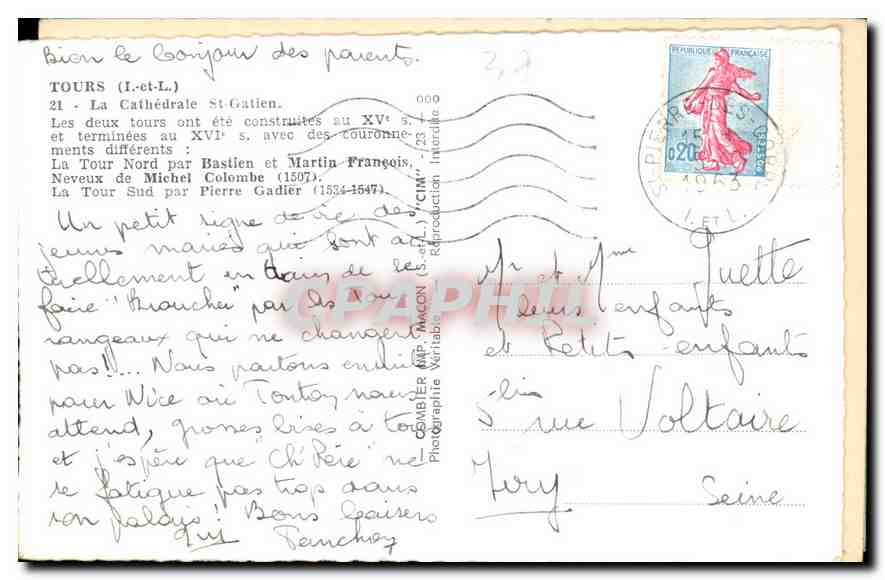 Bien le bonjour des parents.
TOURS (I.-et-L.)
21 - La Cathédrale St-Gatien.
Les deux tours ont été construites au XVe s.
et terminées au XVIe s. avec des couronne-
ments différents :
La Tour Nord par Bastien et Martin François,
Neveux de Michel Colombe (1507).
La Tour Sud par Pierre Gadier (1534-1547).
Un petit signe de vie des
jeunes mariés qui sont ac-
tuellement en train de se
faire par les
qui ne changent
pas!!... Nous partons ensuite
pour Nice où Tonton nous
attend, grosses bises à tous
et j'espère que "Ch' Père" ne
se fatigue pas trop dans
son palais! Bons baisers
COMBIER IMP. MACON (S.-et-L.) "CIM" - 23
Photographie Véritable - Reproduction Interdite
000
3,7
REPUBLIQUE FRANÇAISE
0,20
POSTES
ST-PIERRE-DES-CORPS
15
1963
I. ET L.
Mr et Mme Juette
leurs enfants
et Petits-enfants
5 rue Voltaire
Ivry Seine
CPAPHIL